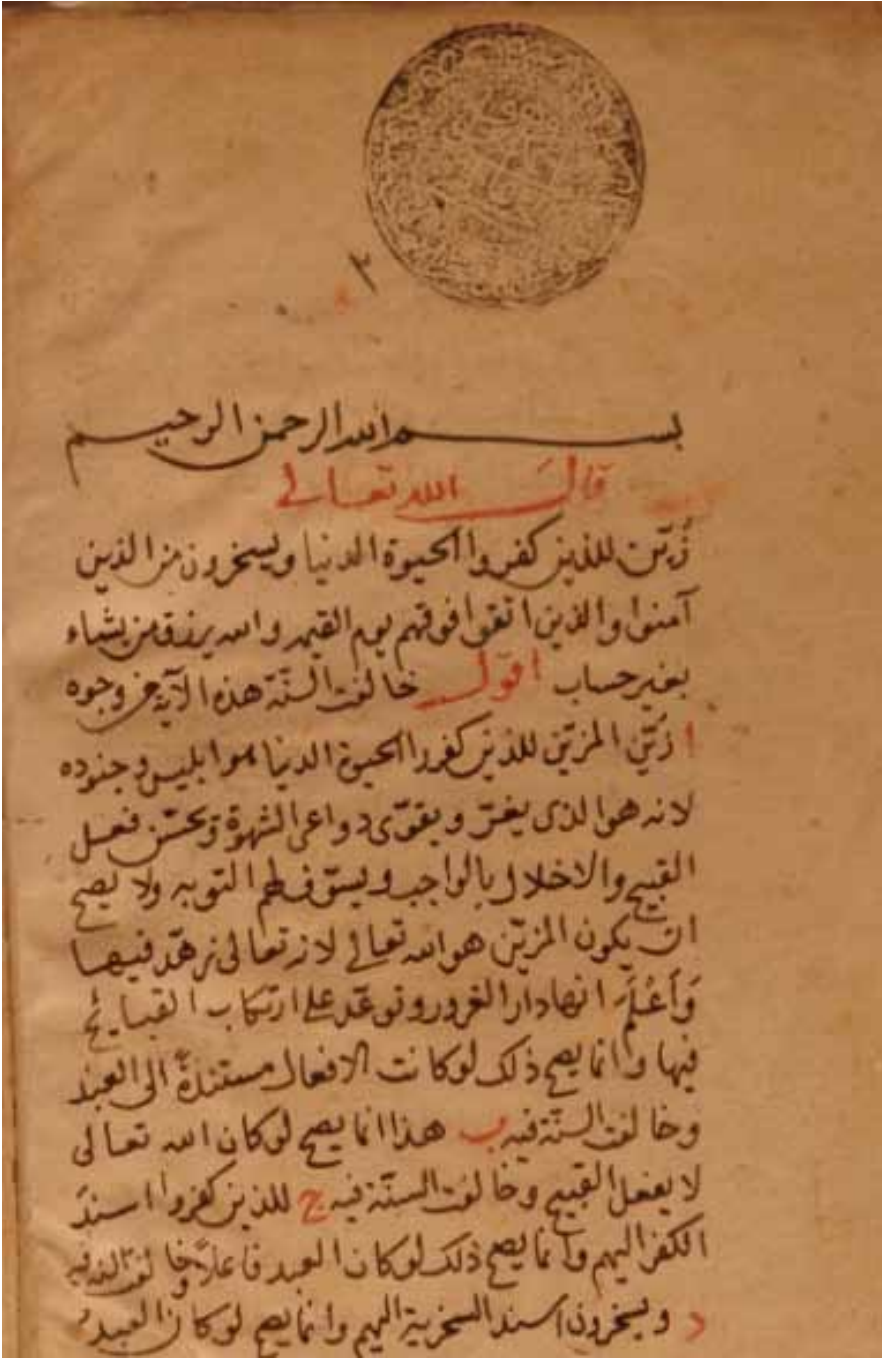 ٢
بسم الله الرحمن الرحيم
قال الله تعالى
زُيّن للذين كفروا الحيوة الدنيا ويسخرون من الذين
آمنوا والذين اتقوا فوقهم يوم القيمه والله يرزق من يشاء
بغير حساب اقول خالفت السنّة هذه الآية من وجوه
ا زُيّن المزيّن للذين كفروا الحيوة الدنيا هو ابليس وجنوده
لانه هو الذى يغرّ ويقوّى دواعى الشهوة ويحسّن فعل
القبيح والاخلال بالواجب ويسوّف لهم التوبه ولا يصح
ان يكون المزيّن هو الله تعالى لانه تعالى زهّد فيها
وَأَعْلَمَ انها دار الغرور وتوعّد على ارتكاب القبايح
فيها وانما يصح ذلك لو كانت الافعال مستندة الى العبد
وخالفت السنّة فيه ب هذا انما يصح لو كان الله تعالى
لا يفعل القبيح وخالفت السنّة فيه ج للذين كفروا اسند
الكفر اليهم وانما يصح ذلك لو كان العبد فاعلاً وخالفت السنة فيه
د ويسخرون اسند السخرية اليهم وانما يصح لو كان العبد